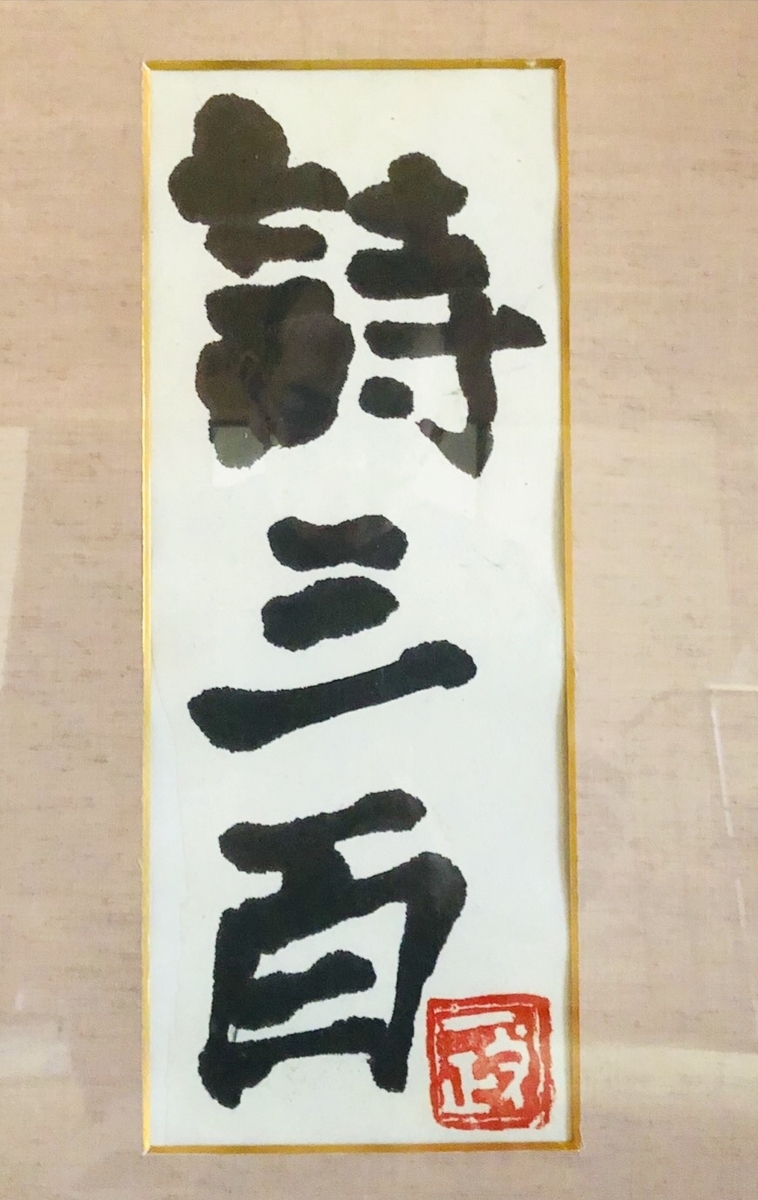 詩三百
一政